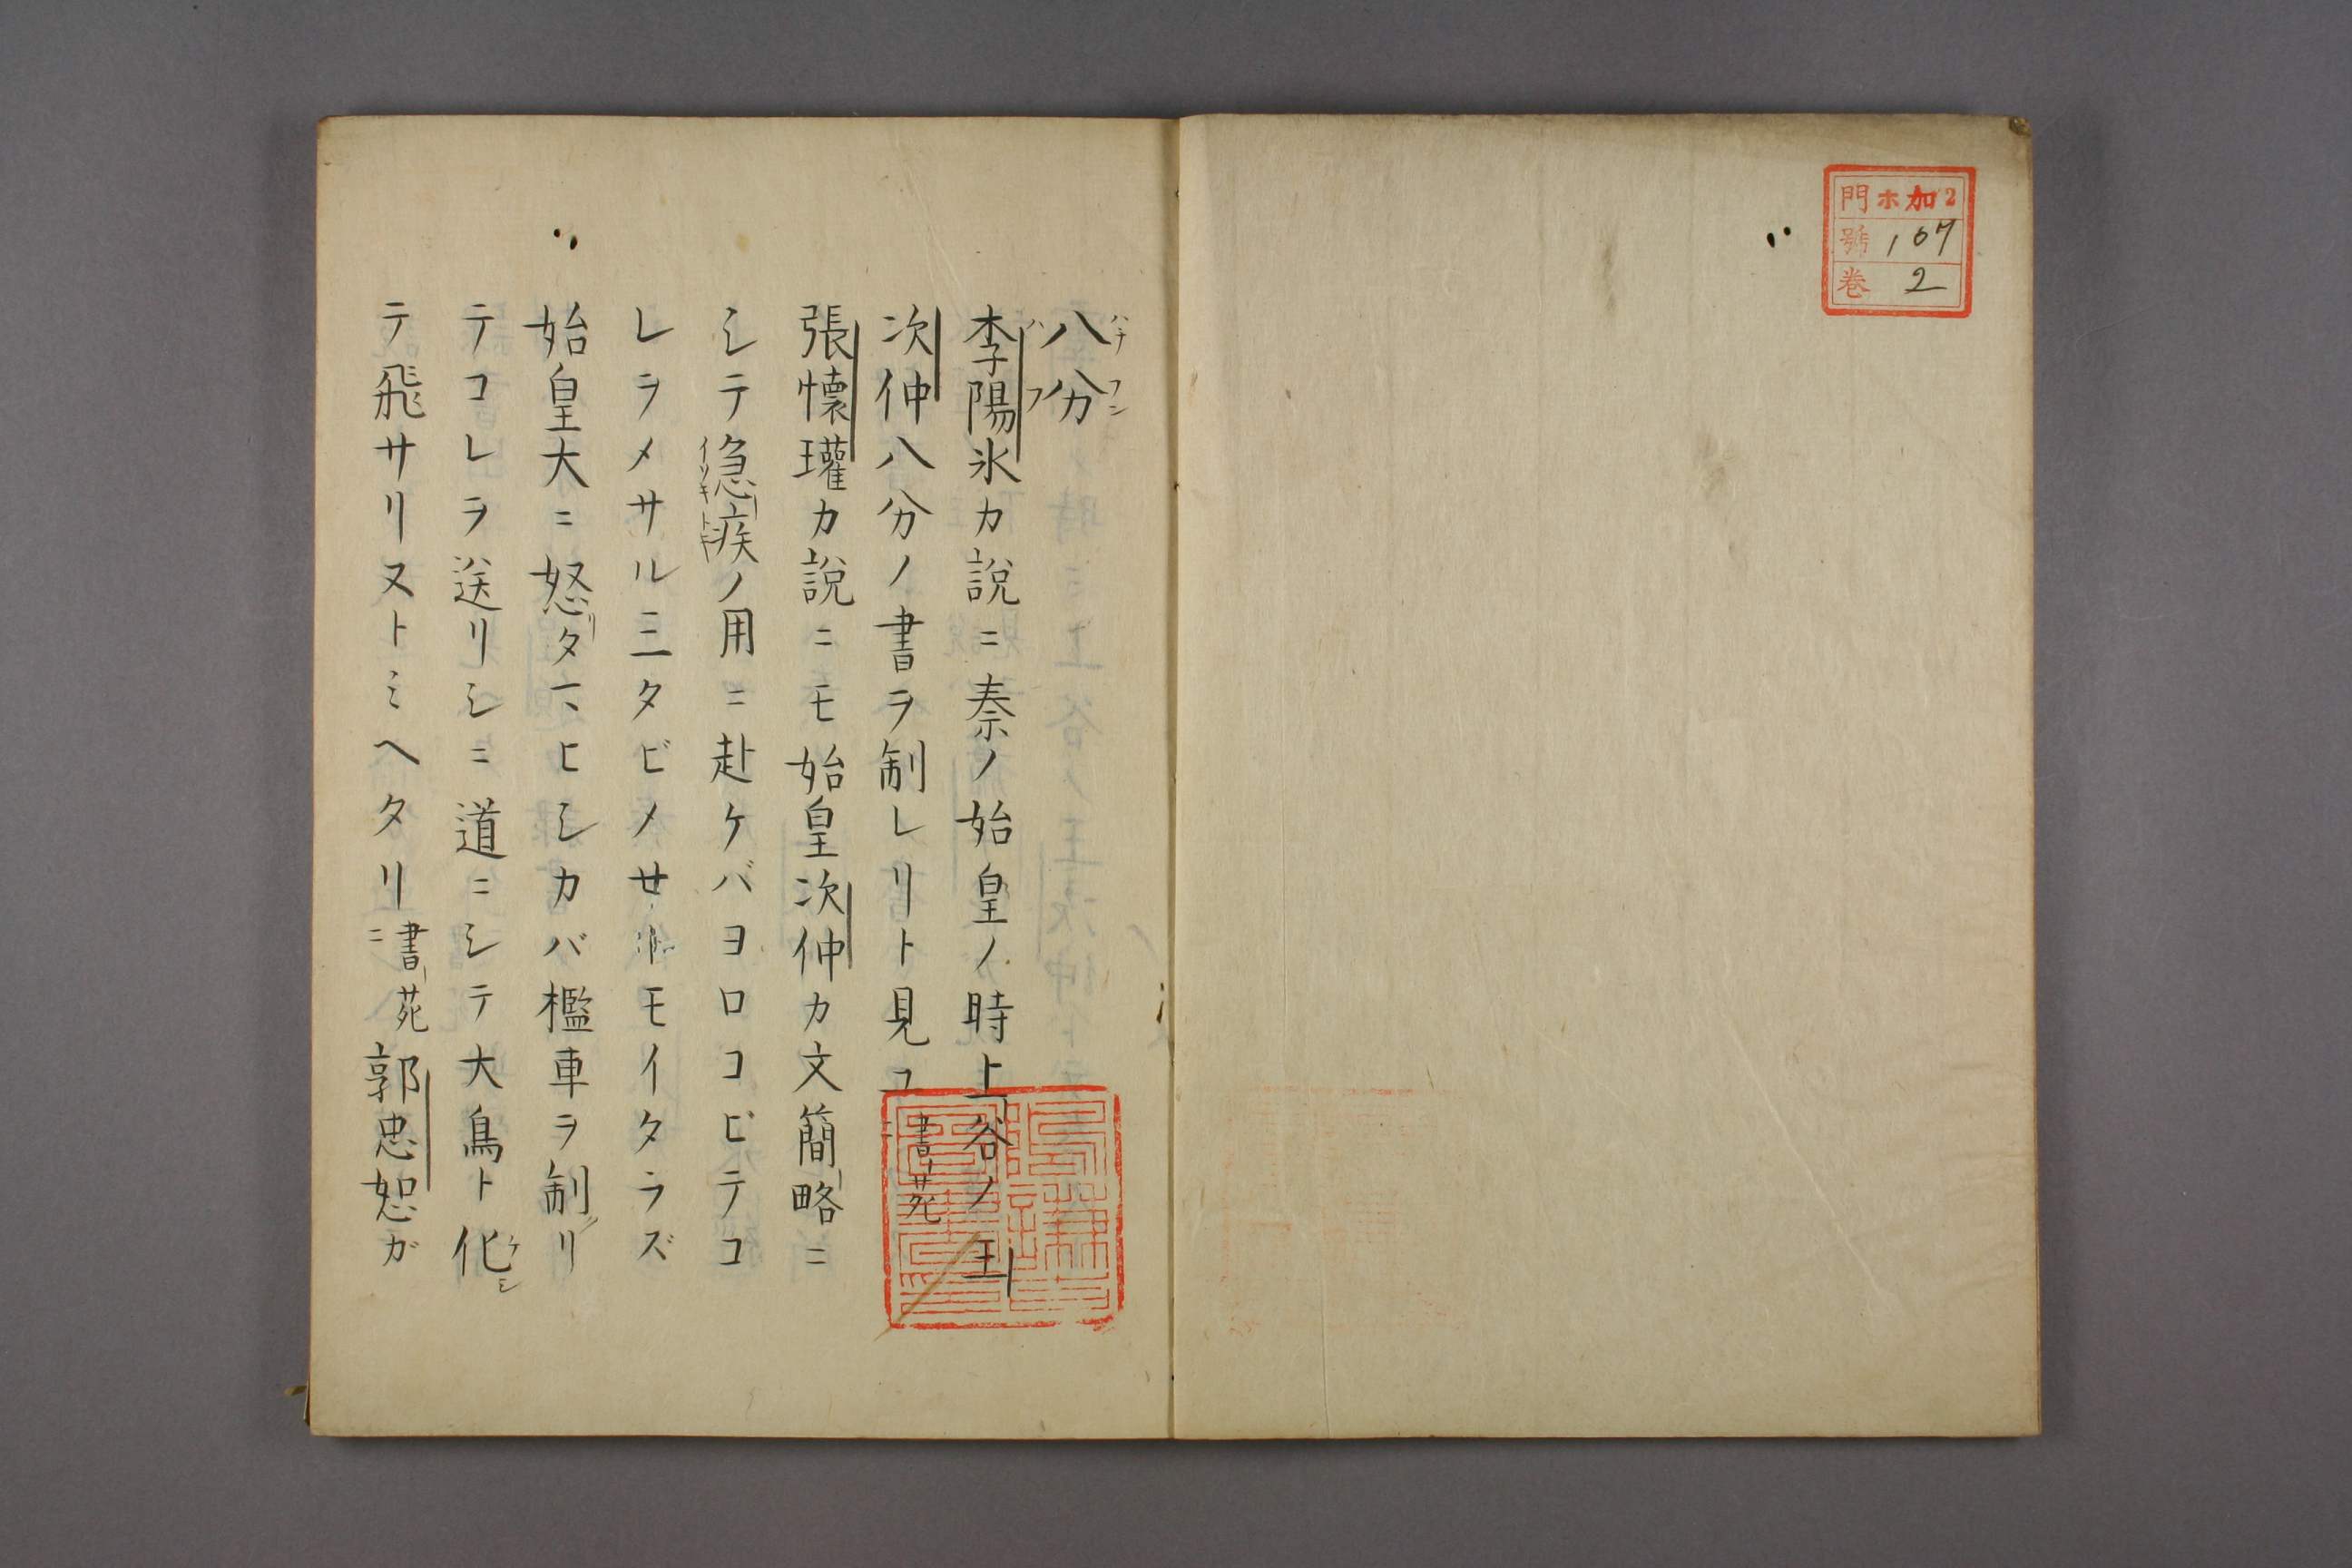 門ホ加2
號107
卷2
八分
李陽氷カ説ニ秦ノ始皇ノ時上谷ノ王
次仲八分ノ書ヲ制レリト見ユ書苑ニ
張懷瓘カ説ニモ始皇次仲カ文簡略ニ
シテ急疾ノ用ニ赴ケバヨロコビテコ
レヲメサル三タビメセ𪜈モイタラズ
始皇大ニ怒タマヒシカバ檻車ヲ制リ
テコレヲ送リシニ道ニシテ大鳥ト化
テ飛サリヌトミヘタリ書苑ニ郭忠恕ガ